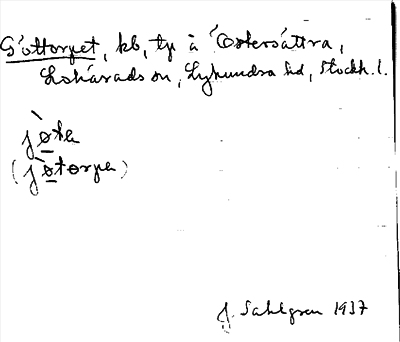 Göttorpet, kb, tp å Östersättra,
Lohärads sn, Lyhundra hd, Stockh. l.
jø̀ta
(jø̀torpa)
J. Sahlgren 1937